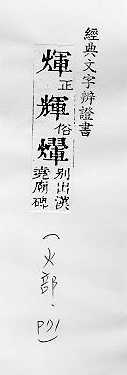 經典文字辨證書
煇正輝俗
別出漢
堯廟碑
(火部.